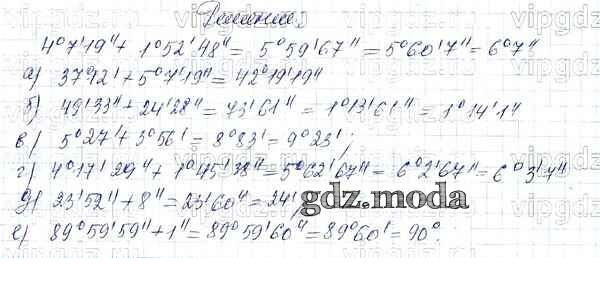 Решение.
4°7'19" + 1°52'48" = 5°59'67" = 5°60'7" = 6°7"
а) 37°12' + 5°7'19" = 42°19'19"
б) 49'33" + 24'28" = 73'61" = 1°13'61" = 1°14'1"
в) 5°27' + 3°56' = 8°83' = 9°23';
г) 4°17'29" + 1°45'38" = 5°62'67" = 6°2'67" = 6°3'7"
д) 23'52" + 8" = 23'60" = 24';
е) 89°59'59" + 1" = 89°59'60" = 89°60' = 90°.
gdz.moda